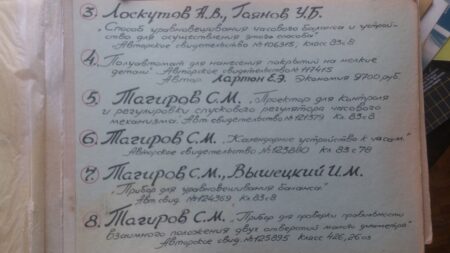 3. Лоскутов А.В., Гаянов Ч.Б.
„Способ уравновешивания часового баланса и устрой-
ство для осуществления этого способа"
Авторское свидетельство № 106315, Класс 83с8
4. Полуавтомат для нанесения покрытий на мелкие
детали". Авторское свидетельство № 117415
Автор Лартан Е.Э. Экономия 9700 руб.
5. Тагиров С.М. „Проектор для контроля
и регулировки спускового регулятора часового
механизма. Авт свидетельство № 121379 Кл. 83с8
6. Тагиров С.М. „Календарное устройство к часам"
Авторское свидетельство № 123880 Кл 83с78
7. Тагиров С.М., Вышецкий И.М.
„Прибор для уравновешивания баланса"
Авт свид. № 124369, Кл 83с8
8. Тагиров С.М. „Прибор для проверки правильности
взаимного положения двух отверстий малых диаметров"
Авторское свид. № 125895 Класс 42б, 26